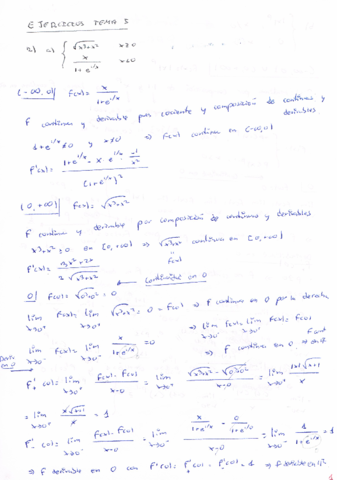 EJERCICIOS TEMA 5
2) a) { √x³+x² x≥0
x / 1+e^(1/x) x<0
(-∞,0) f(x) = x / 1+e^(1/x)
f continua y derivable por cociente y composición de continuas y derivables
1+e^(1/x) ≠ 0 y x≠0 ⇒ f(x) continua en (-∞,0)
f'(x) = 1+e^(1/x) - x e^(1/x) · -1/x² / (1+e^(1/x))²
(0,+∞) f(x) = √x³+x²
f continua y derivable por composición de continuas y derivables
x³+x² ≥ 0 en [0,+∞) ⇒ √x³+x² continua en [0,+∞)
f(x)
f'(x) = 3x²+2x / 2√x³+x²
continuidad en 0
0) f(0) = √0³+0² = 0
lim x→0⁺ f(x) = lim x→0⁺ √x³+x² = 0 = f(0) ⇒ f continua en 0 por la derecha
lim x→0⁻ f(x) = lim x→0⁻ x / 1+e^(1/x) = 0
⇒ lim x→0⁺ f(x) = lim x→0⁻ f(x) = f(0)
⇒ f continua en 0
f'₊(0) = lim x→0⁺ f(x)-f(0) / x-0 = lim x→0⁺ √x³+x² - √0³+0² / x-0 = lim x→0⁺ |x|√x+1 / x
= lim x→0⁺ x√x+1 / x = 1
f'₋(0) = lim x→0⁻ f(x)-f(0) / x-0 = lim x→0⁻ x / 1+e^(1/x) - 0 / x-0 = lim x→0⁻ 1 / 1+e^(1/x) = 1
⇒ f derivable en 0 con f'(0) = f'₊(0) = f'₋(0) = 1 ⇒ f derivable en